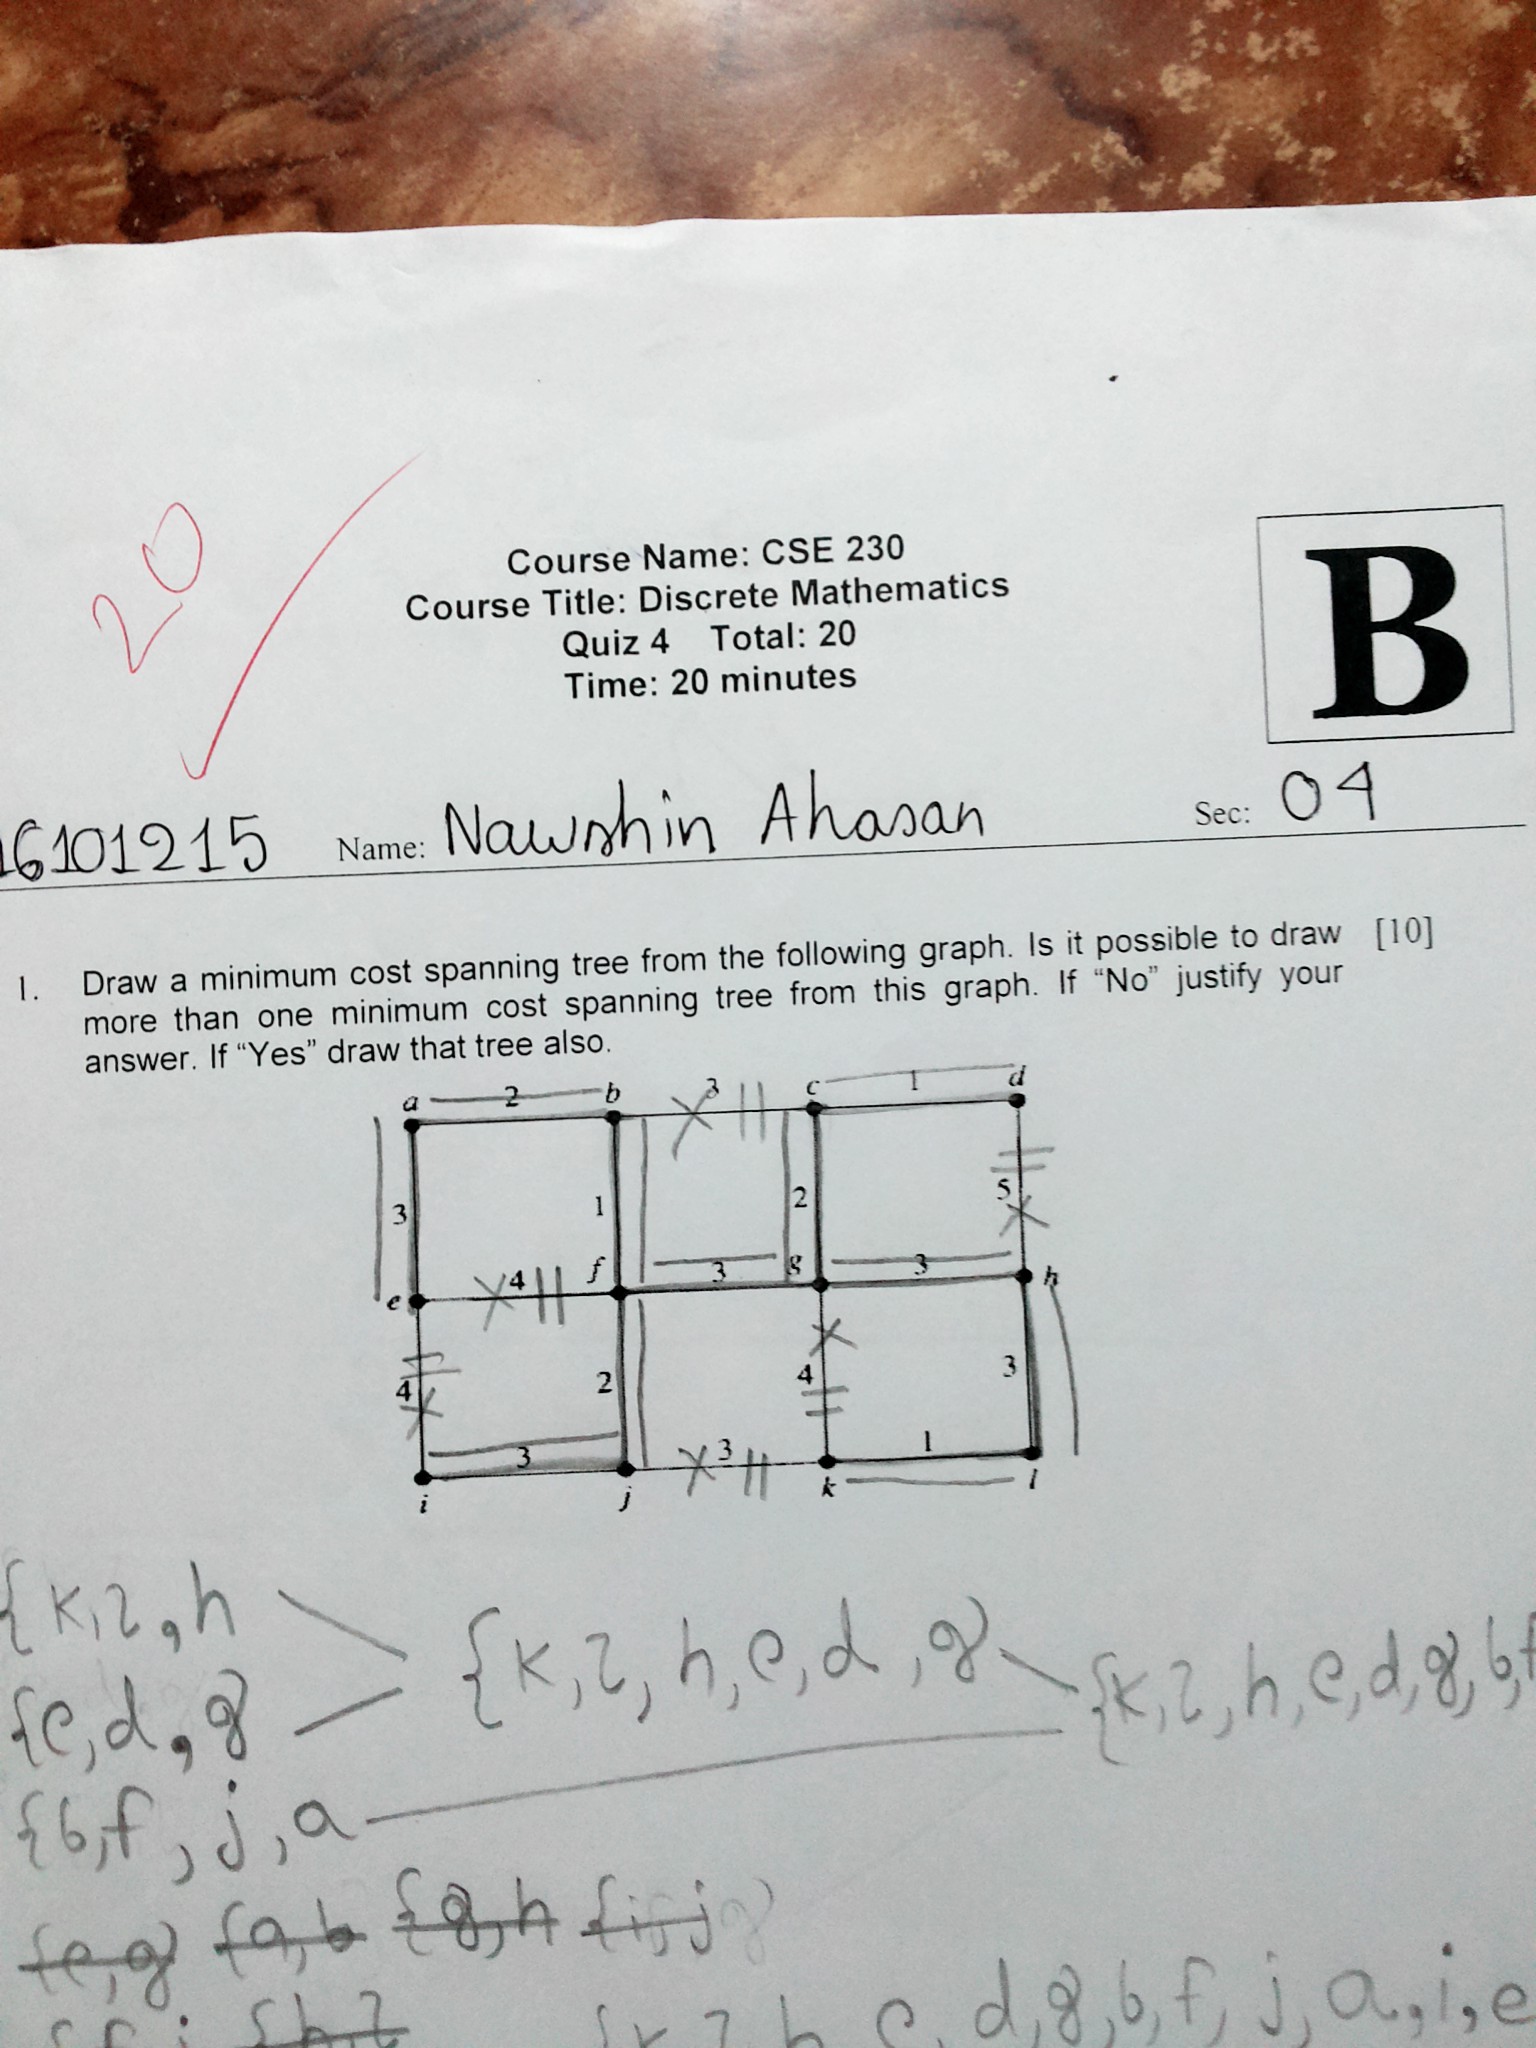 20
Course Name: CSE 230
Course Title: Discrete Mathematics
Quiz 4 Total: 20
Time: 20 minutes
B
16101215 Name: Nawshin Ahasan Sec: 04
1. Draw a minimum cost spanning tree from the following graph. Is it possible to draw [10]
more than one minimum cost spanning tree from this graph. If "No" justify your
answer. If "Yes" draw that tree also.
a 2 b 3 c 1 d
3 1 2 5
e 4 f 3 g 3 h
4 2 4 3
i 3 j 3 k 1 l
{k,l,h
{k,l,h,c,d,g}
{k,l,h,c,d,g,b,f
{c,d,g}
{b,f,j,a
{c,g} {a,b {g,h {i,j
{h,l
{k,l,h,c,d,g,b,f,j,a,i,e